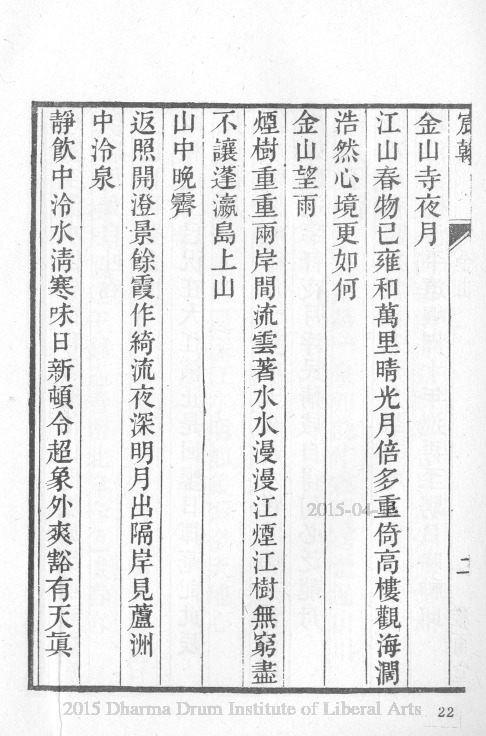 宸翰
二
金山寺夜月
江山春物已雍和萬里晴光月倍多重倚高樓觀海濶
浩然心境更如何
金山望雨
煙樹重重兩岸間流雲著水水漫漫江煙江樹無窮盡
不讓蓬瀛島上山
山中晚霽
返照開澄景餘霞作綺流夜深明月出隔岸見蘆洲
中泠泉
靜飲中泠水清寒味日新頓令超象外爽豁有天眞
2015-04-
2015 Dharma Drum Institute of Liberal Arts
22